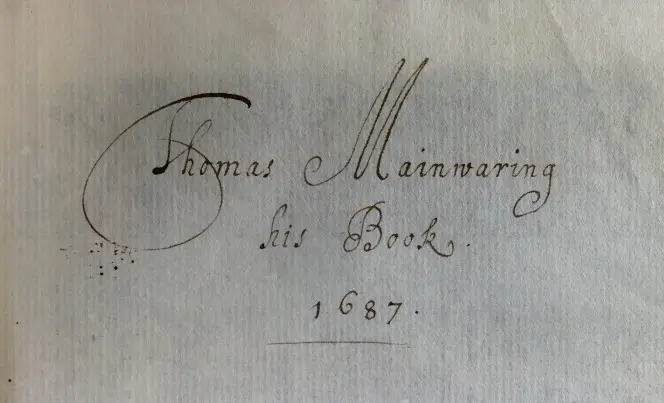 Thomas Mainwaring
his Book.
1687.